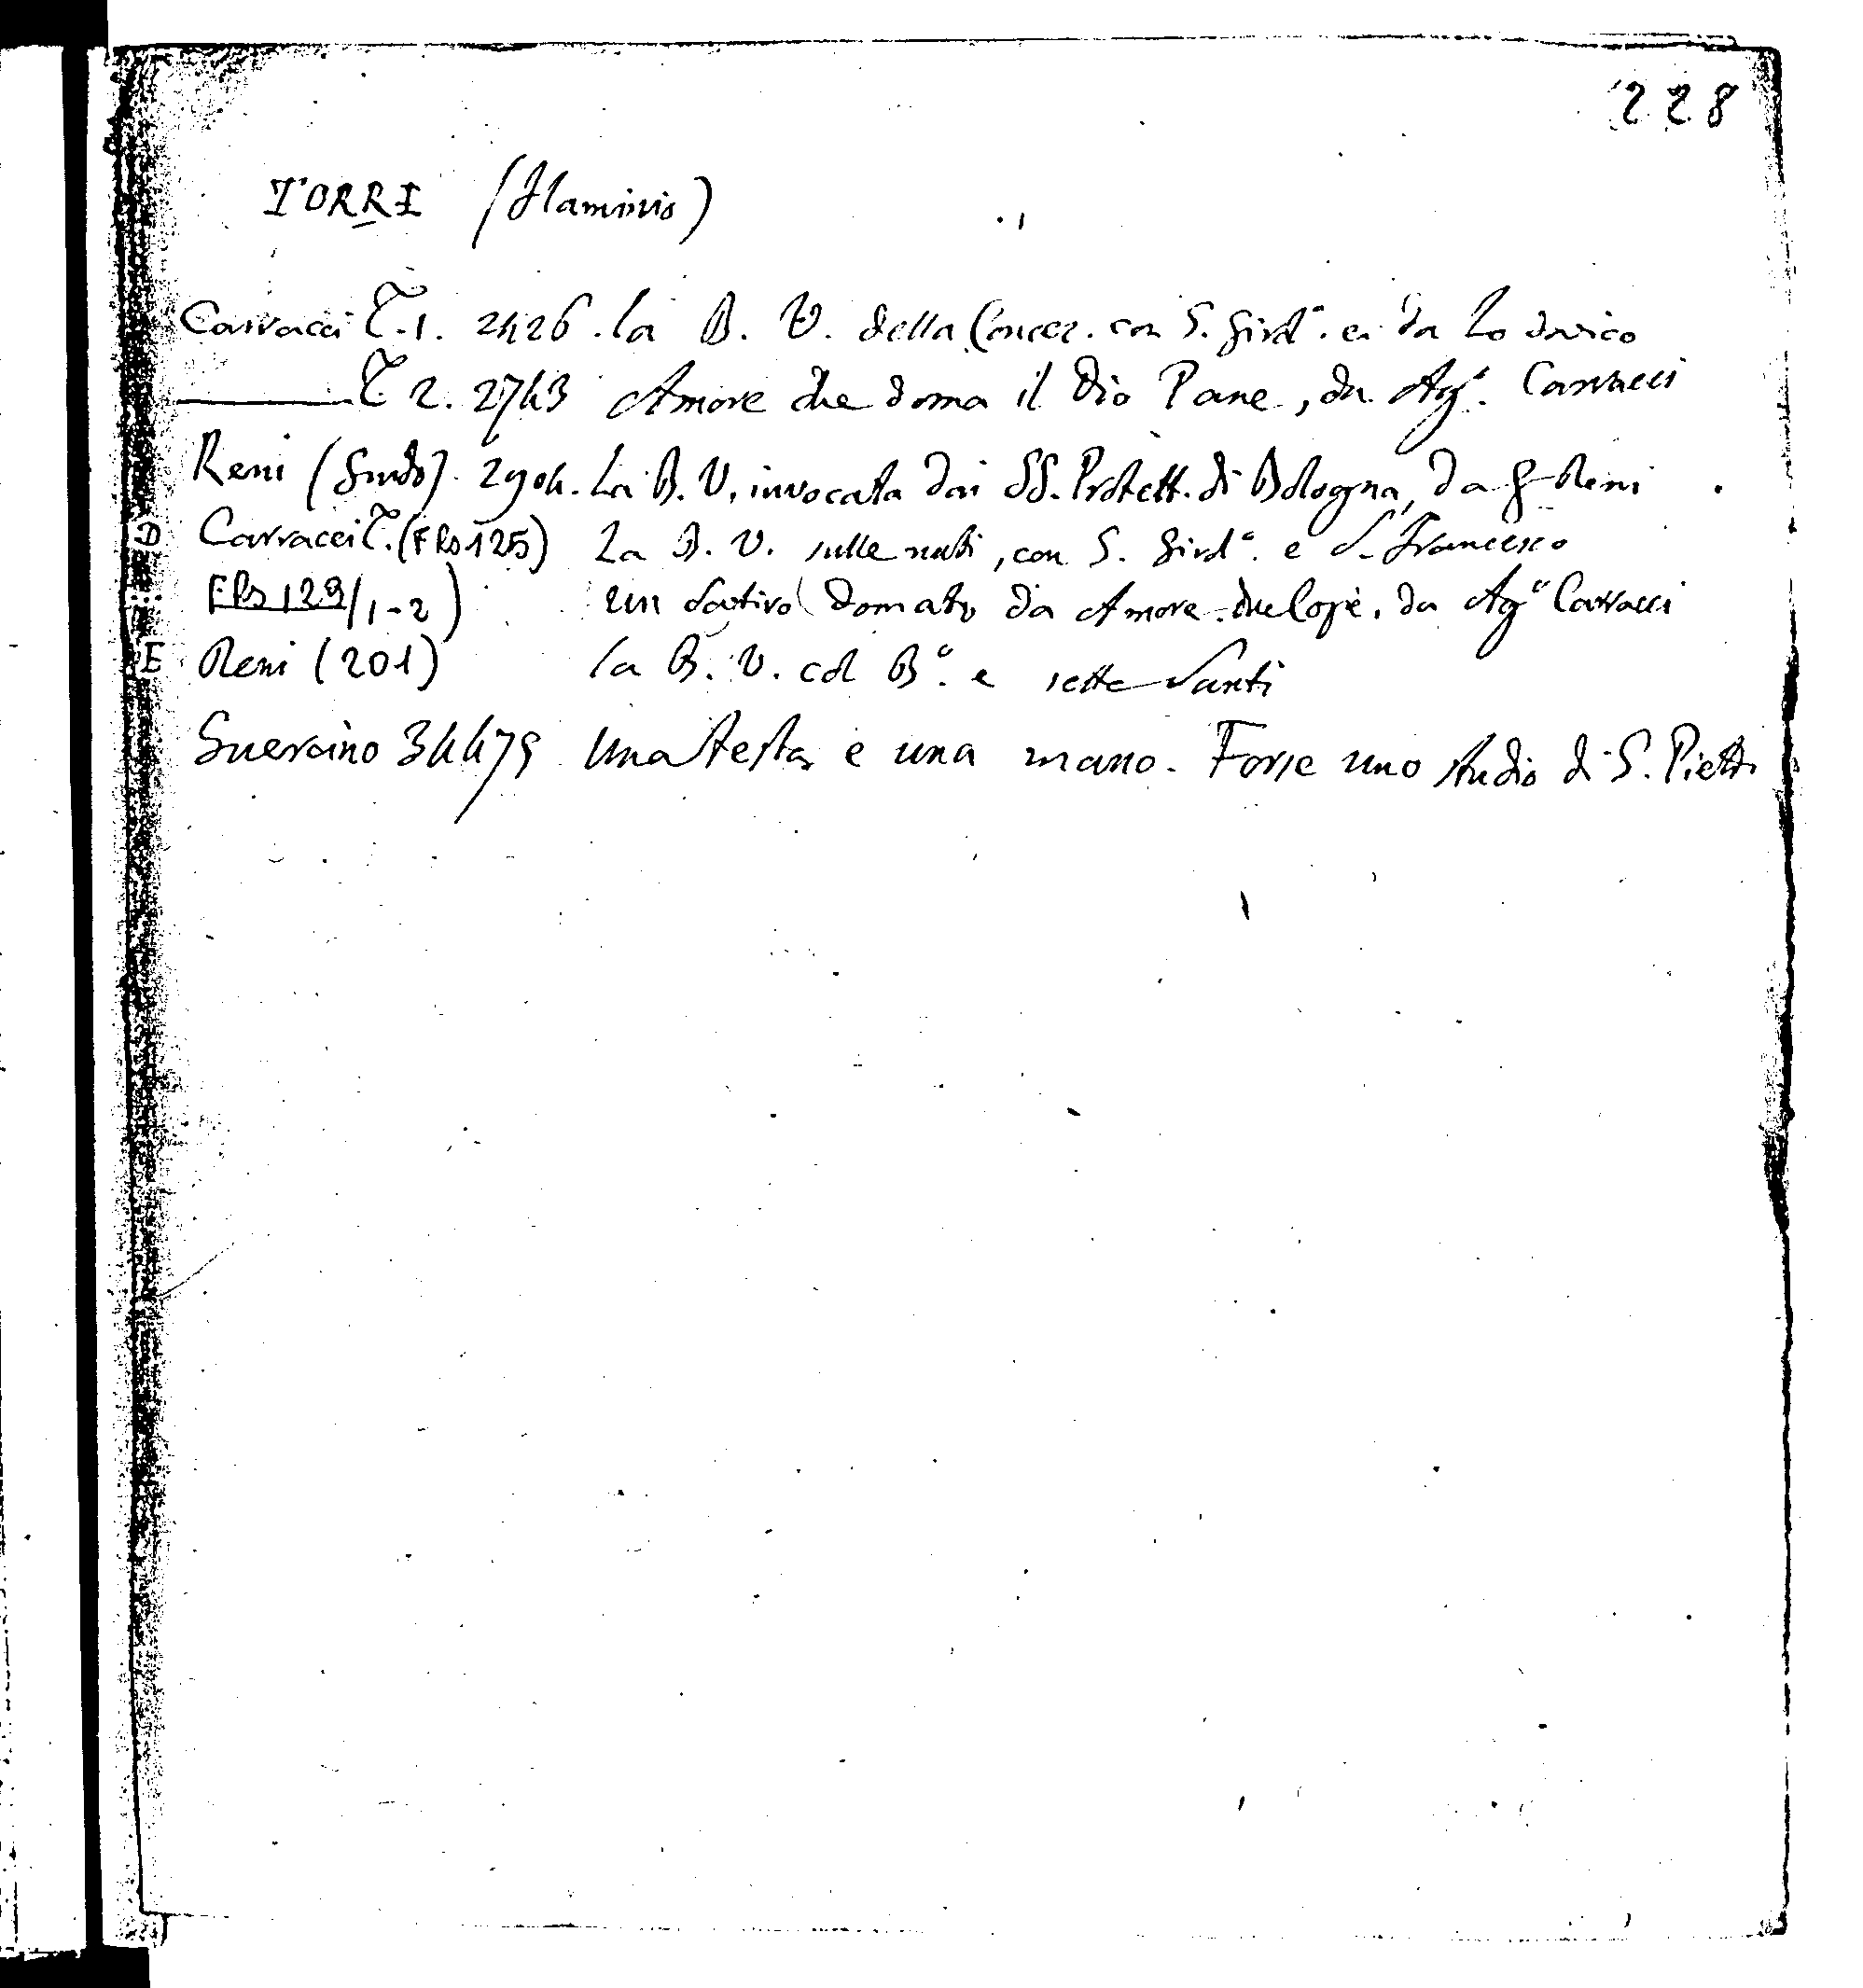 228
TORRI (Flaminio)
Carracci T. 1. 2426. la B. V. della Concez. con S. Gird°. e da Lodovico
T 2. 2743 Amore che doma il Dio Pane, da Ag°. Carracci
Reni (Guido). 2904. La B. V. invocata dai SS. Protett. di Bologna, da G Reni
D Carracci T. (FRS 125) La B. V. sulle nubi, con S. Gird°. e S. Francesco
FRS 129/1-2) un Satiro domato da Amore. due Copie. da Ag° Carracci
E Reni (201) la B. V. col B°. e sette Santi
Guercino 34479 Una testa e una mano. Forse uno studio di S. Pietro